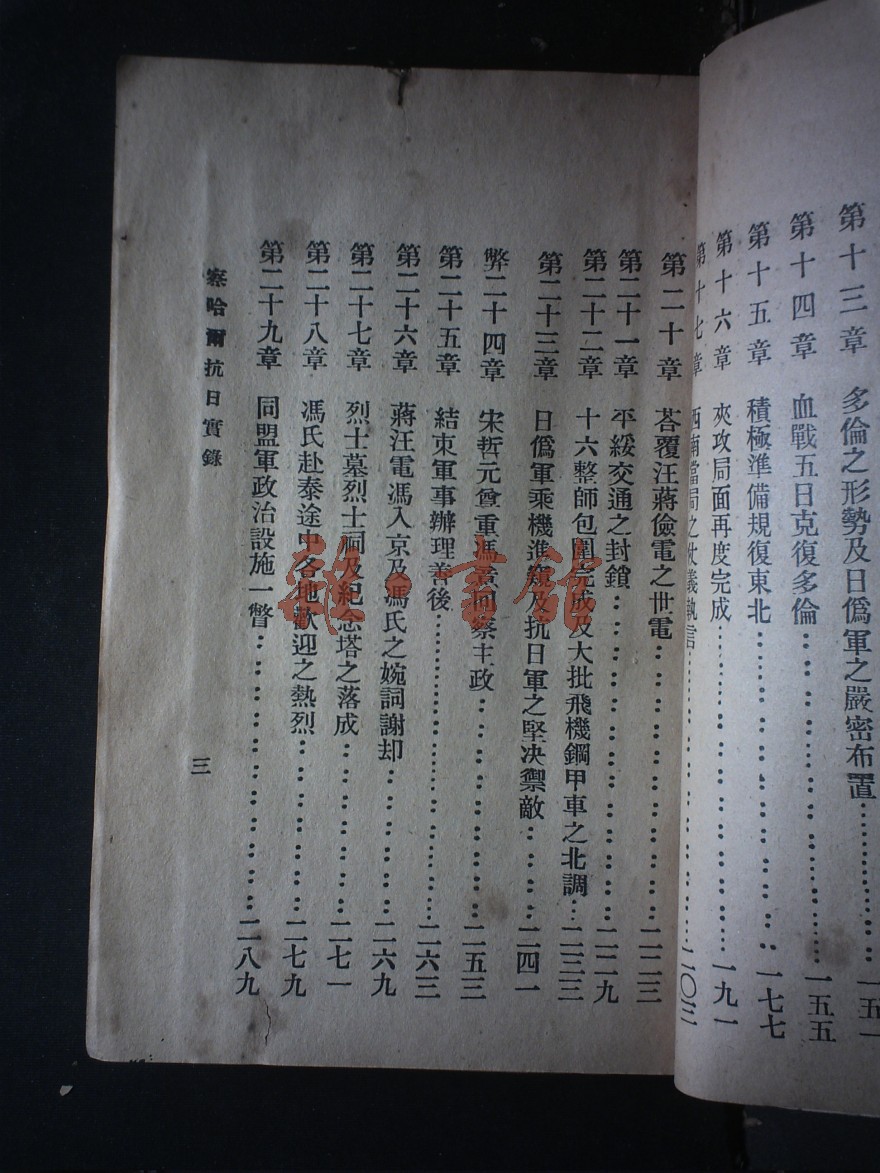 第十三章 多倫之形勢及日僞軍之嚴密布置…………一五一
第十四章 血戰五日克復多倫…………一五五
第十五章 積極準備規復東北…………一七七
第十六章 夾攻局面再度完成…………一九一
第十七章 西南當局之仗義執言…………二〇三
第二十章 荅覆汪蔣儉電之世電…………二二三
第二十一章 平綏交通之封鎖…………二二九
第二十二章 十六整師包圍完成及大批飛機鋼甲車之北調…二三三
第二十三章 日僞軍乘機進窺及抗日軍之堅决禦敵…………二四一
弊二十四章 宋哲元尊重馮責回察主政…………二五三
第二十五章 結束軍事辦理善後…………二六三
第二十六章 蔣汪電馮入京及馮氏之婉詞謝却…………二六九
第二十七章 烈士墓烈士祠及紀念塔之落成…………二七一
第二十八章 馮氏赴泰途中各地歡迎之熱烈…………二七九
第二十九章 同盟軍政治設施一瞥…………二八九
察哈爾抗日實錄
三